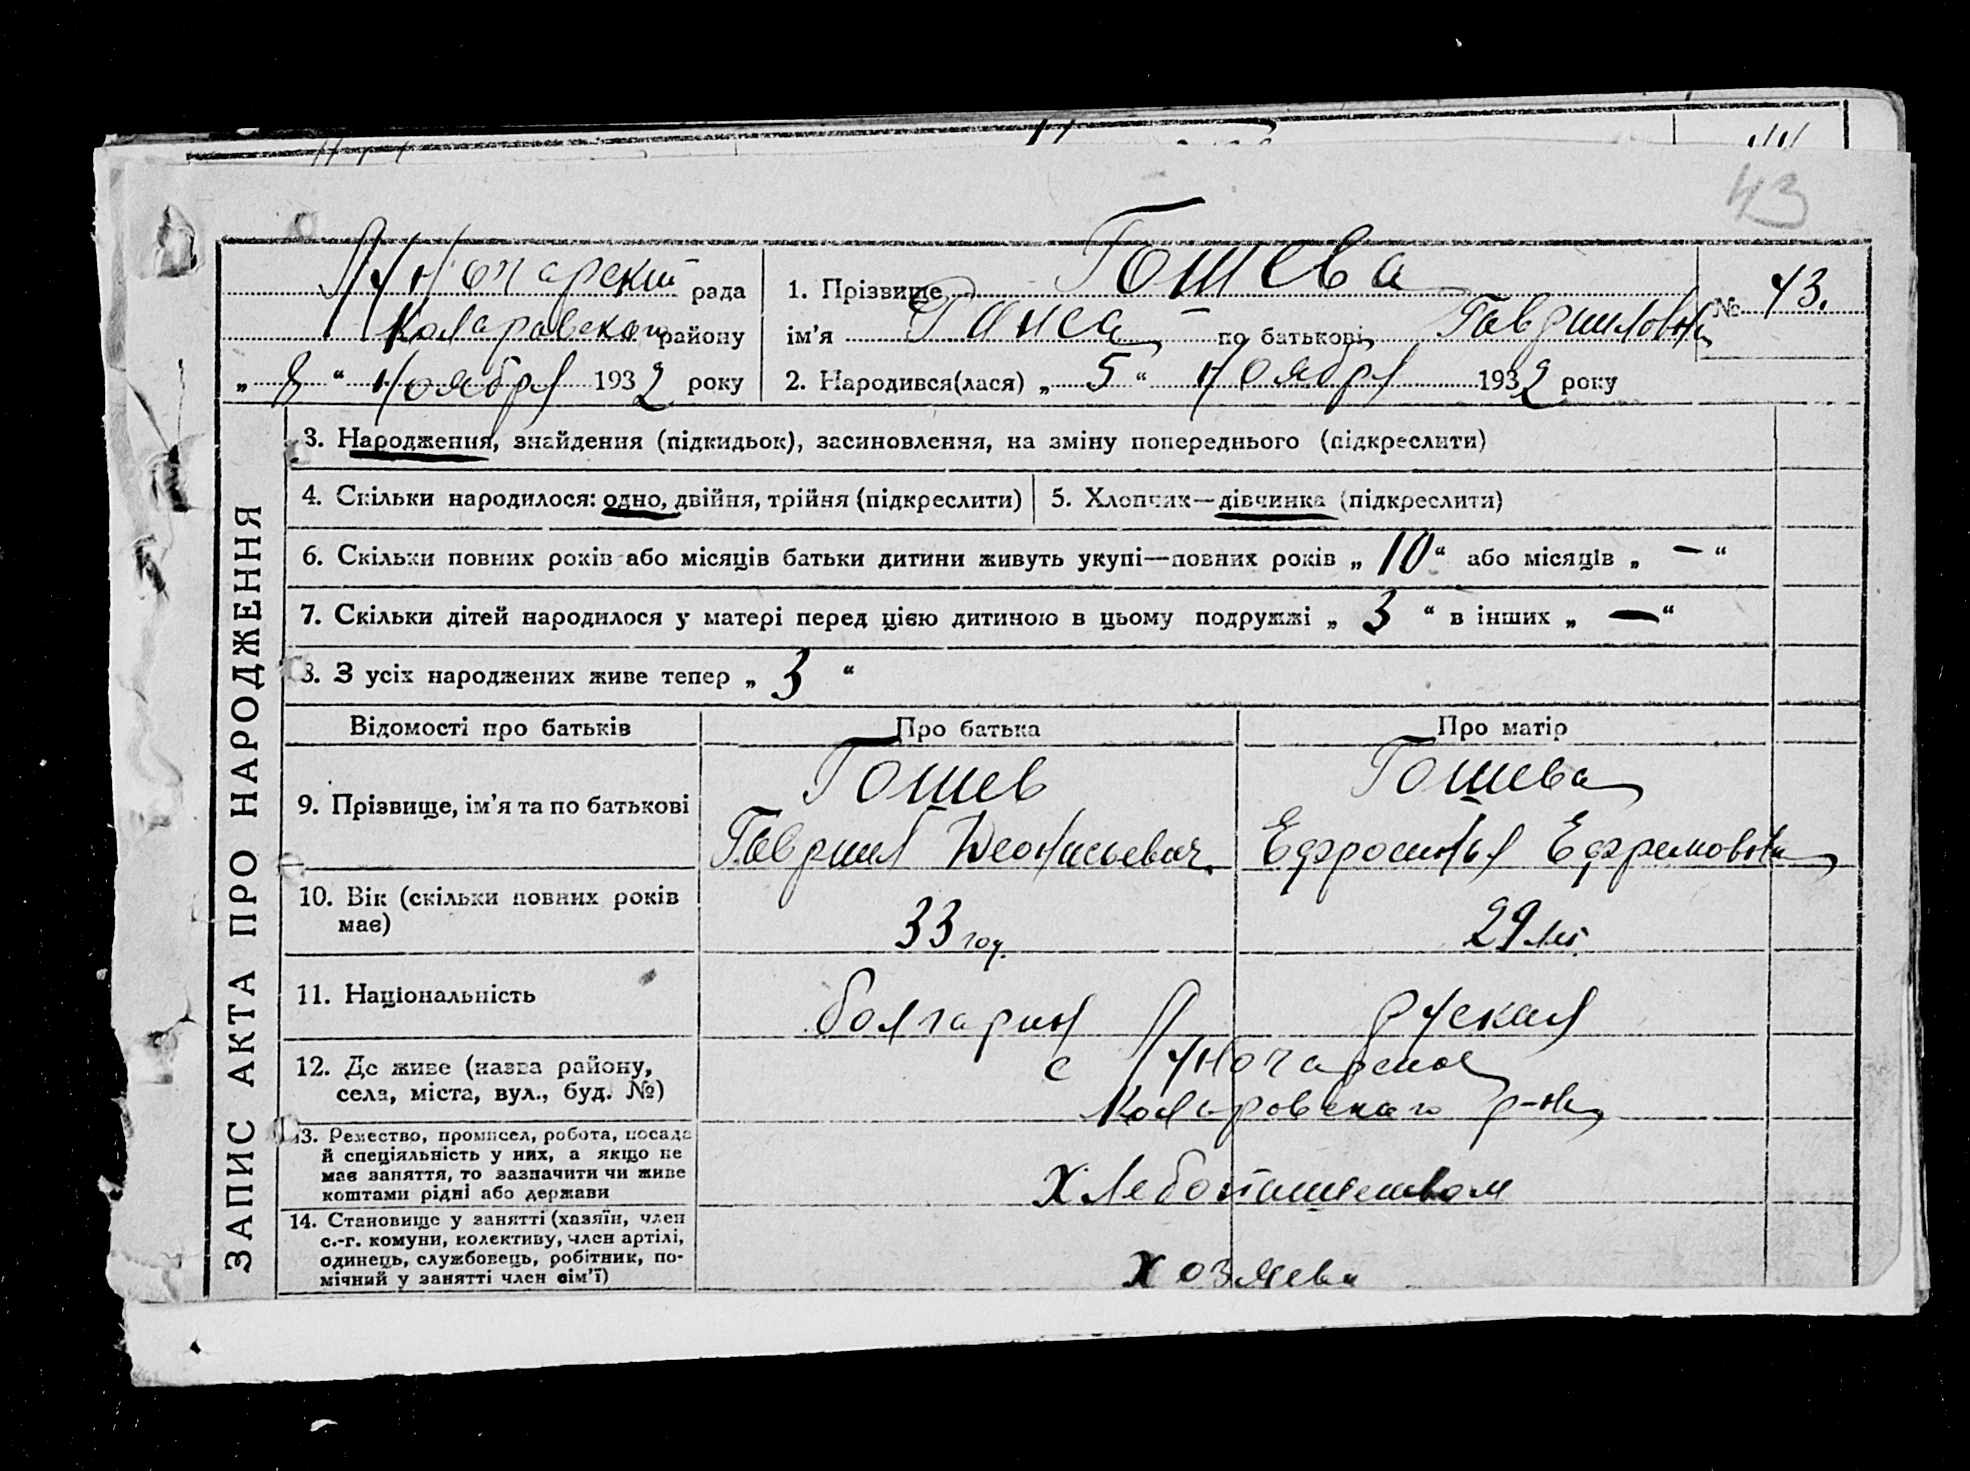 43
Луночарский рада
Коларовского району
„ 8 “ Ноября 1932 року
1. Прізвище Гошева
№ 43.
ім’я Раиса по батькові Гавриловна
2. Народився(лася) „ 5 “ Ноября 1932 року
ЗАПИС АКТА ПРО НАРОДЖЕННЯ
3. Народження, знайдення (підкидьок), засиновлення, на зміну попереднього (підкреслити)
4. Скільки народилося: одно, двійня, трійня (підкреслити)
5. Хлопчик—дівчинка (підкреслити)
6. Скільки повних років або місяців батьки дитини живуть укупі—повних років „ 10 “ або місяців „ — “
7. Скільки дітей народилося у матері перед цією дитиною в цьому подружжі „ 3 “ в інших „ — “
8. З усіх народжених живе тепер „ 3 “
Відомості про батьків
Про батька
Про матір
9. Прізвище, ім’я та по батькові
Гошев
Гавриил Деонисьевич
Гошева
Ефросинья Ефремовна
10. Вік (скільки повних років
має)
33 год.
29 лет.
11. Національність
болгарин
руская
12. Де живе (назва району,
села, міста, вул., буд. №)
с Луночарское
Коларовского р-на
13. Ремество, промисел, робота, посада
й спеціяльність у них, а якщо не
має заняття, то зазначити чи живе
коштами рідні або держави
Хлебопашеством
14. Становище у занятті (хазяїн, член
с.-г. комуни, колективу, член артілі,
одинець, службовець, робітник, по-
мічний у занятті член сім’ї)
Хозяева